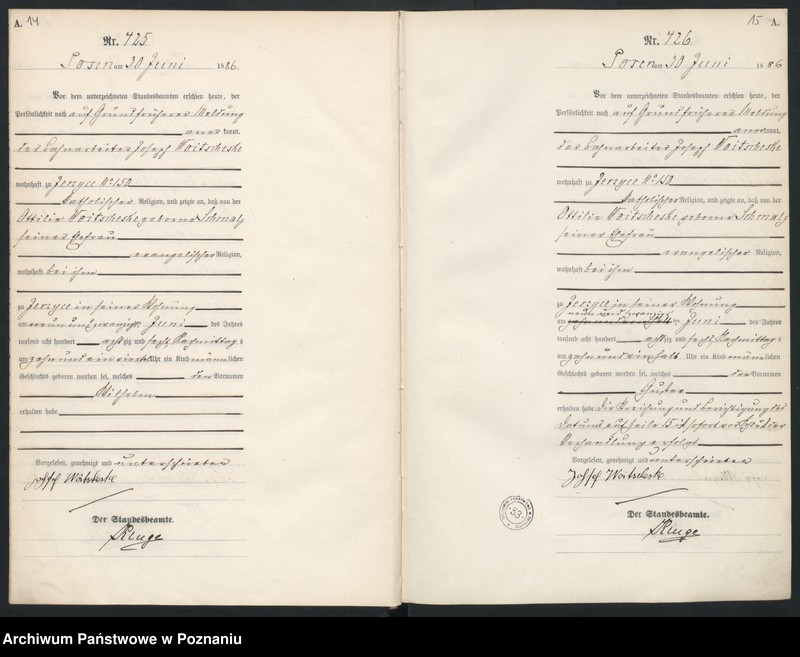 A. 14
Nr. 425
Posen am 30 Juni 1886
Vor dem unterzeichneten Standesbeamten erschien heute, der
Persönlichkeit nach auf Grund früherer Meldung
anerkannt,
der Bahnarbeiter Joseph Woitscheske
wohnhaft zu Jerzyce No 150
katholischer Religion, und zeigte an, daß von der
Ottilie Woitscheske geborene Schmalz
seiner Ehefrau
evangelischer Religion,
wohnhaft bei ihm
zu Jerzyce in seiner Wohnung
am neun und zwanzigsten Juni des Jahres
tausend acht hundert achtzig und sechs Nachmittags
um zehn und ein viertel Uhr ein Kind männlichen
Geschlechts geboren worden sei, welches den Vornamen
Wilhelm
erhalten habe
Vorgelesen, genehmigt und unterschrieben
Joseph Woitscheske
Der Standesbeamte.
Kluge
15 A.
Nr. 426
Posen am 30 Juni 1886
Vor dem unterzeichneten Standesbeamten erschien heute, der
Persönlichkeit nach auf Grund früherer Meldung
anerkannt,
der Bahnarbeiter Joseph Woitscheske
wohnhaft zu Jerzyce No 150
katholischer Religion, und zeigte an, daß von der
Ottilie Woitscheske geborene Schmalz
seiner Ehefrau
evangelischer Religion,
wohnhaft bei ihm
zu Jerzyce in seiner Wohnung
neun und zwanzig
am Juni des Jahres
tausend acht hundert achtzig und sechs Nachmittags
um zehn und ein halb Uhr ein Kind männlichen
Geschlechts geboren worden sei, welches den Vornamen
Gustav
erhalten habe. Die Streichung und Berichtigung des
Datums auf Zeile 15 ist sofort vor Schluß der
Verhandlung erfolgt
Vorgelesen, genehmigt und unterschrieben
Joseph Woitscheske
53
Der Standesbeamte.
Kluge
Archiwum Państwowe w Poznaniu